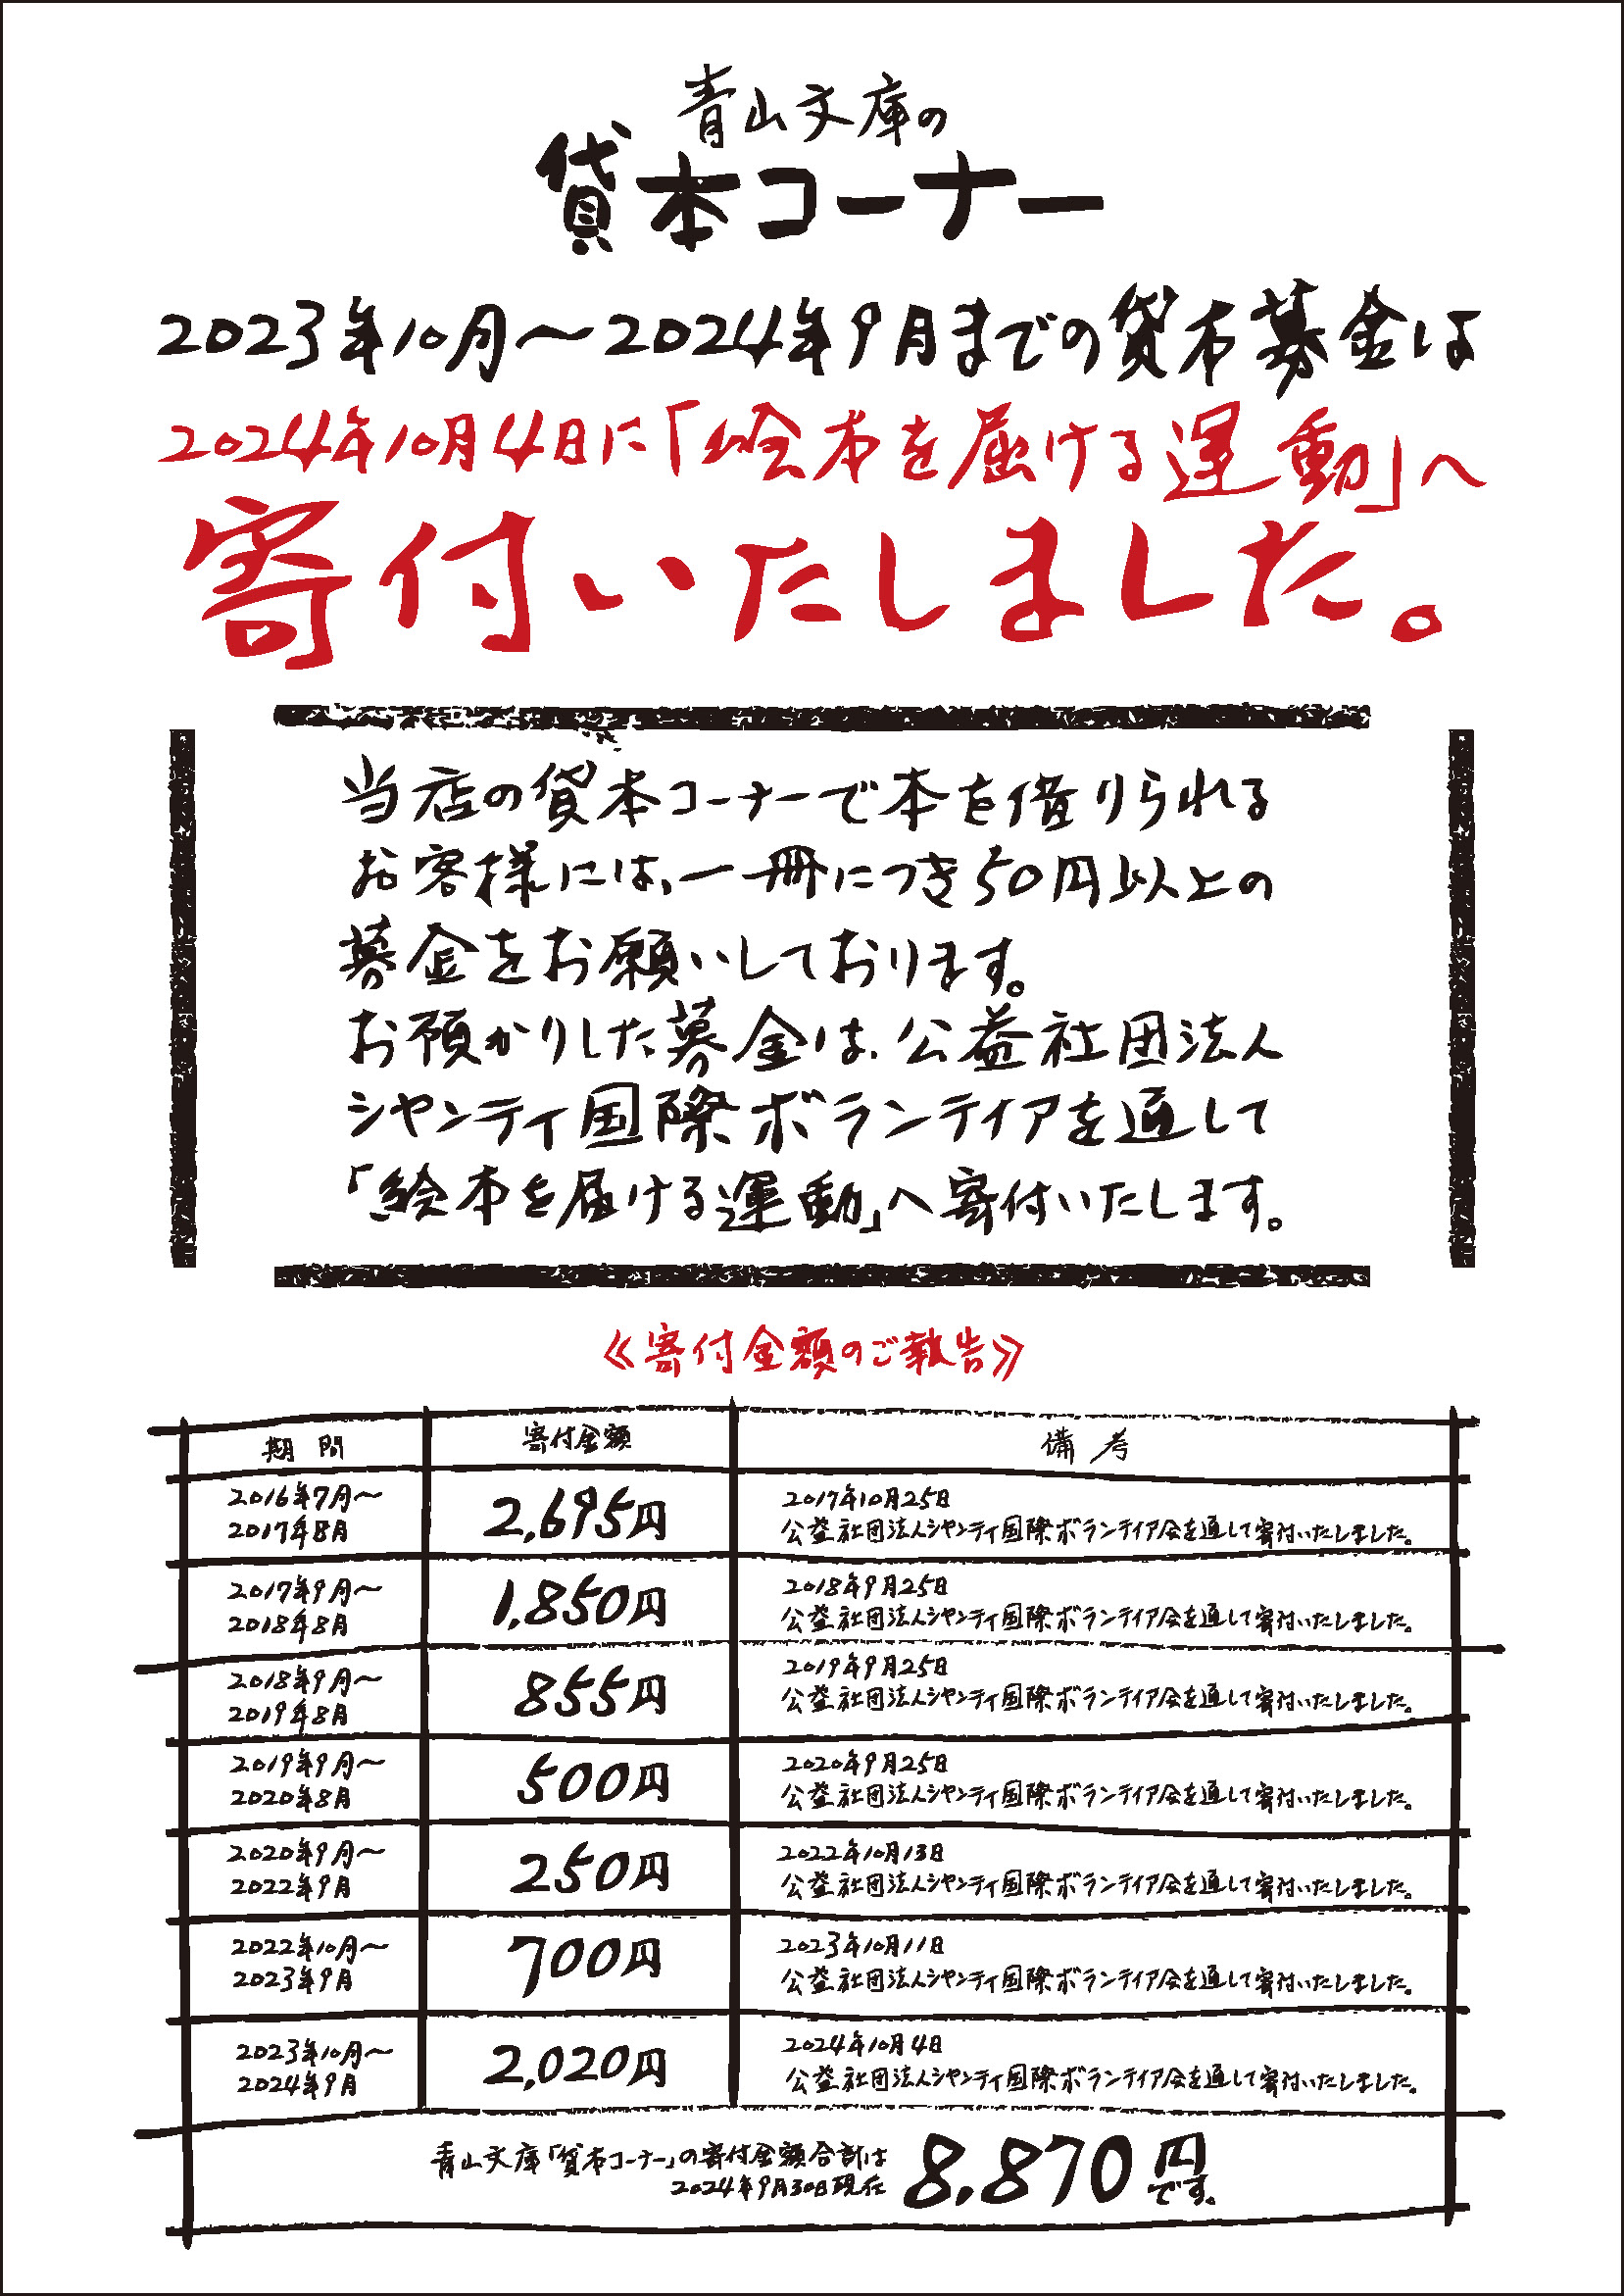 青山文庫の
貸本コーナー
2023年10月〜2024年9月までの貸本募金は
2024年10月4日に「絵本を届ける運動」へ
寄付いたしました。
当店の貸本コーナーで本を借りられる
お客様には、一冊につき50円以上の
募金をお願いしております。
お預かりした募金は、公益社団法人
シャンティ国際ボランティアを通して
「絵本を届ける運動」へ寄付いたします。
≪寄付金額のご報告≫
期間 寄付金額 備考
2016年7月〜
2017年8月
2,695円
2017年10月25日
公益社団法人シャンティ国際ボランティア会を通して寄付いたしました。
2017年9月〜
2018年8月
1,850円
2018年9月25日
公益社団法人シャンティ国際ボランティア会を通して寄付いたしました。
2018年9月〜
2019年8月
855円
2019年9月25日
公益社団法人シャンティ国際ボランティア会を通して寄付いたしました。
2019年9月〜
2020年8月
500円
2020年9月25日
公益社団法人シャンティ国際ボランティア会を通して寄付いたしました。
2020年9月〜
2022年9月
250円
2022年10月13日
公益社団法人シャンティ国際ボランティア会を通して寄付いたしました。
2022年10月〜
2023年9月
700円
2023年10月11日
公益社団法人シャンティ国際ボランティア会を通して寄付いたしました。
2023年10月〜
2024年9月
2,020円
2024年10月4日
公益社団法人シャンティ国際ボランティア会を通して寄付いたしました。
青山文庫「貸本コーナー」の寄付金額合計は
2024年9月30日現在
8,870円です。